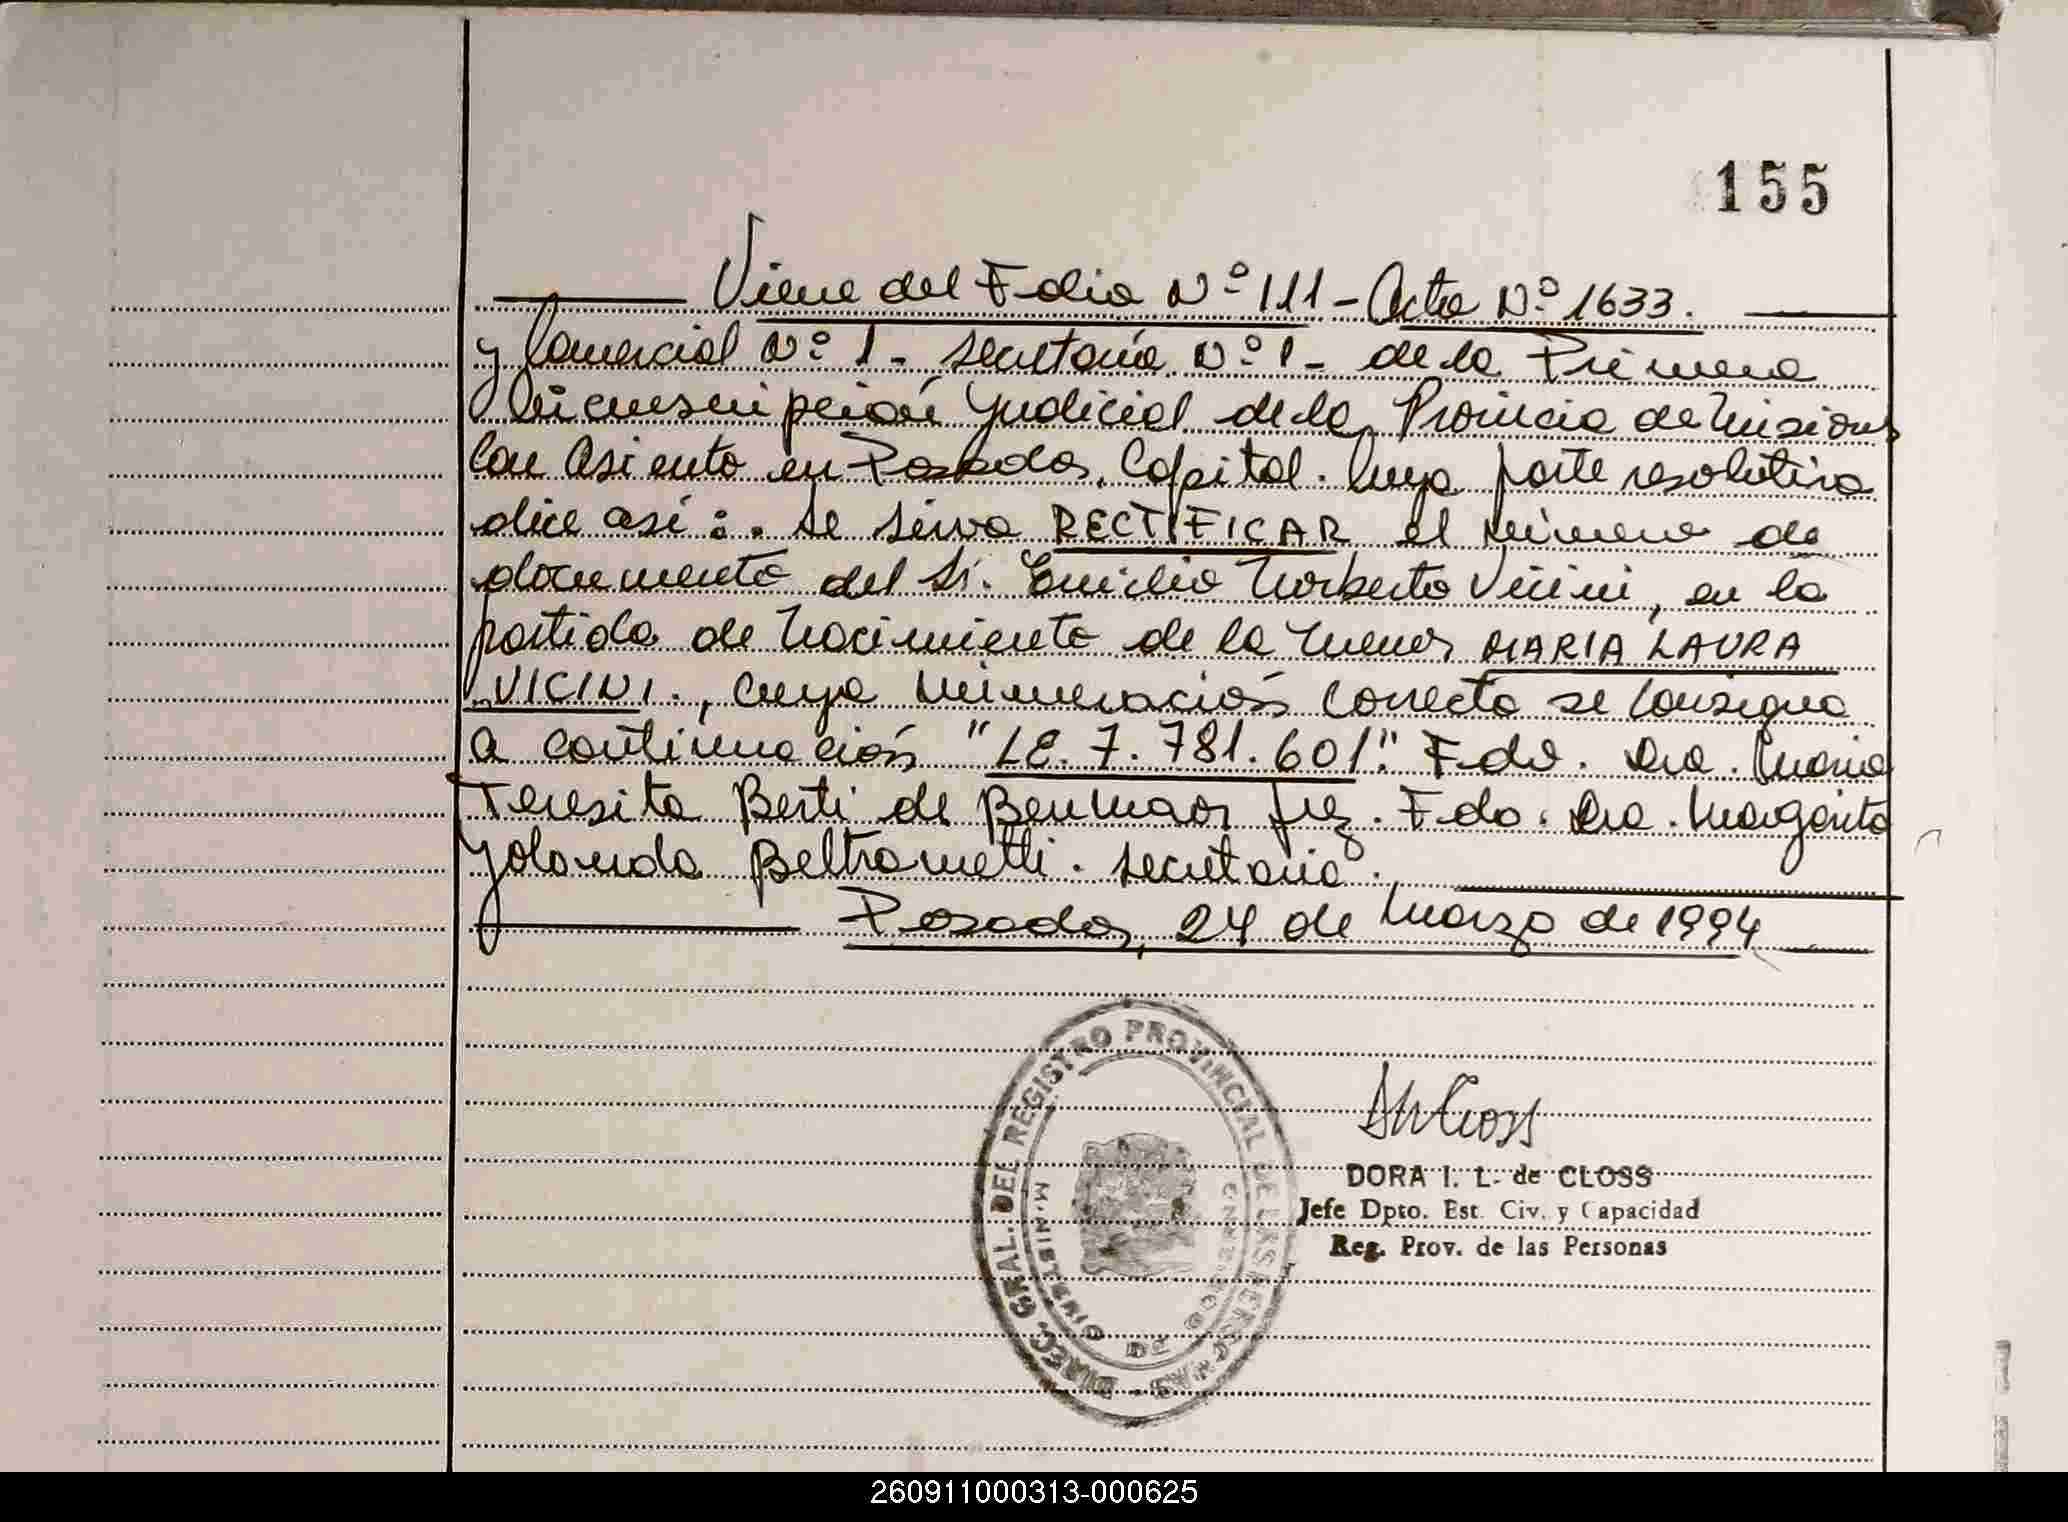 155
Viene del Folio Nº 111 - Acta Nº 1633.
y Comercial Nº 1 - Secretaría Nº 1 - de la Primera
Circunscripción Judicial de la Provincia de Misiones
con asiento en Posadas, Capital. Cuya parte resolutiva
dice así: . Se sirva RECTIFICAR el número de
documento del Sr. Emilio Norberto Vicini, en la
partida de Nacimiento de la menor MARIA LAURA
VICINI., cuya numeración correcta se consigna
a continuación "LE. 7. 781. 601". Fdo. Dra. Maria
Teresita Berti de Benmaor Juez. Fdo. Dra. Margarita
Yolanda Beltrametti. Secretaria.
Posadas, 24 de Marzo de 1994
DIREC. GRAL. DEL REGISTRO PROVINCIAL DE LAS PERSONAS
MINISTERIO DE GOBIERNO
DORA I. L. de CLOSS
Jefe Dpto. Est. Civ. y Capacidad
Reg. Prov. de las Personas
260911000313-000625